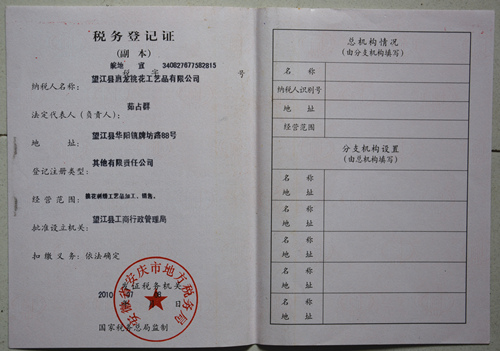 税务登记证
(副 本)
皖地 宣 340827677582815
税 字 号
纳税人名称: 望江县 龙挑花工艺品有限公司
法定代表人(负责人): 茹占群
地 址: 望江县华阳镇牌坊路88号
登记注册类型: 其他有限责任公司
经营范围: 挑花刺绣工艺品加工、销售。
批准设立机关: 望江县工商行政管理局
扣缴义务: 依法确定
发证税务机关
2010 07
日
安徽省安庆市地方税务局
国家税务总局监制
总机构情况
(由分支机构填写)
名 称
纳税人识别号
地 址
经营范围
分支机构设置
(由总机构填写)
名 称
地 址
名 称
地 址
名 称
地 址
名 称
地 址
名 称
地 址